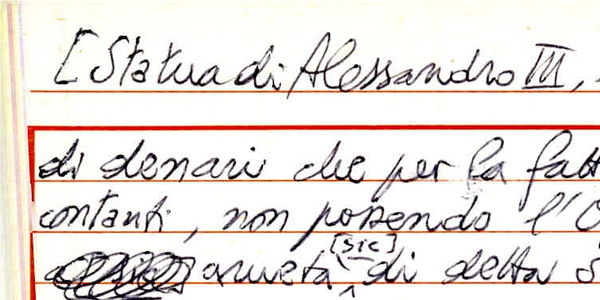 [Statua di Alessandro III,
di denari che per la fatt
contanti, non possendo l'O
[sic]
di detta S